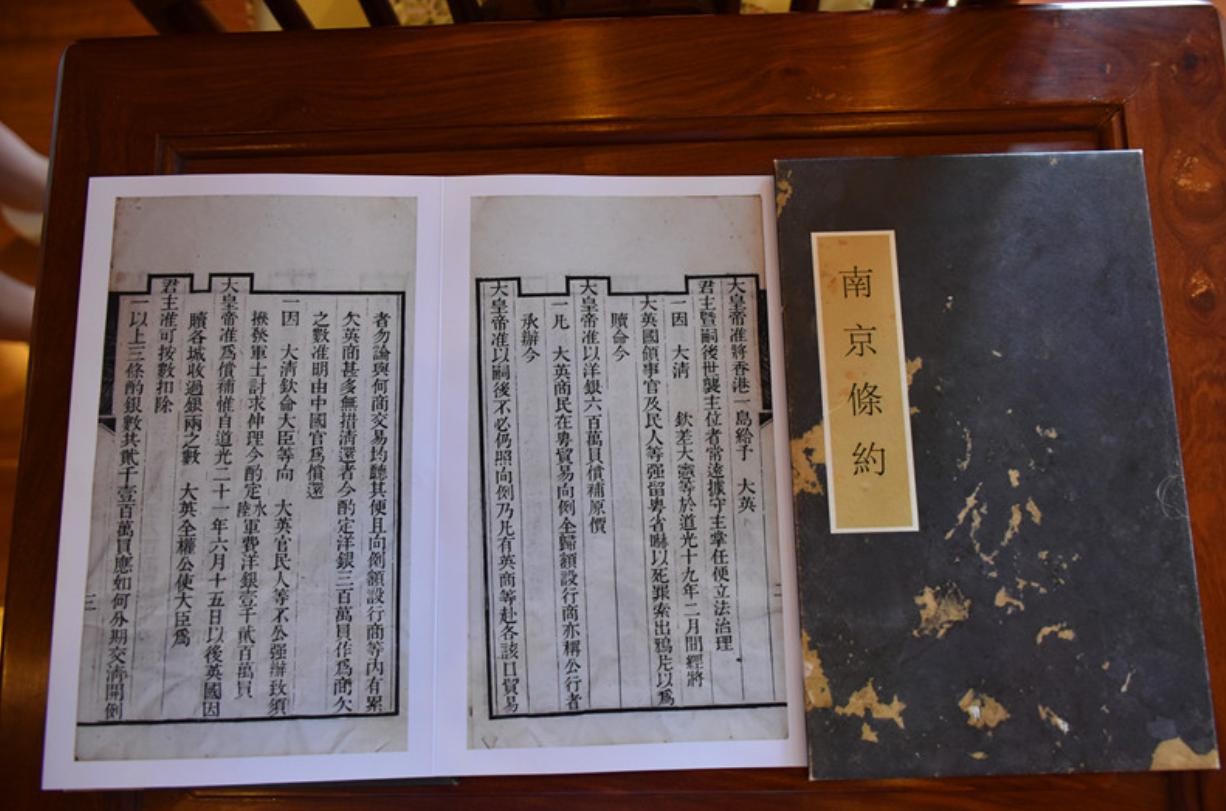 南京條約
大皇帝准將香港一島給予 大英
君主暨嗣後世襲主位者常遠據守主掌任便立法治理
一因 大清 欽差大憲等於道光十九年二月間經將
大英國領事官及民人等强留粵省嚇以死罪索出鴉片以爲
贖命今
大皇帝准以洋銀六百萬員償補原價
一凡 大英商民在粵貿易向例全歸額設行商亦稱公行者
承辦今
大皇帝准以嗣後不必仍照向例乃凡有英商等赴各該口貿易
二
者勿論與何商交易均聽其便且向例額設行商等內有累
欠英商甚多無措清還者今酌定洋銀三百萬員作爲商欠
之數准明由中國官爲償還
一因 大清欽命大臣等向 大英官民人等不公强辦致須
撥發軍士討求伸理今酌定水陸軍費洋銀壹千貳百萬員
大皇帝准爲償補惟自道光二十一年六月十五日以後英國因
贖各城收過銀兩之數 大英全權公使大臣爲
君主准可按數扣除
一以上三條酌銀數共貳千壹百萬員應如何分期交清開例
三